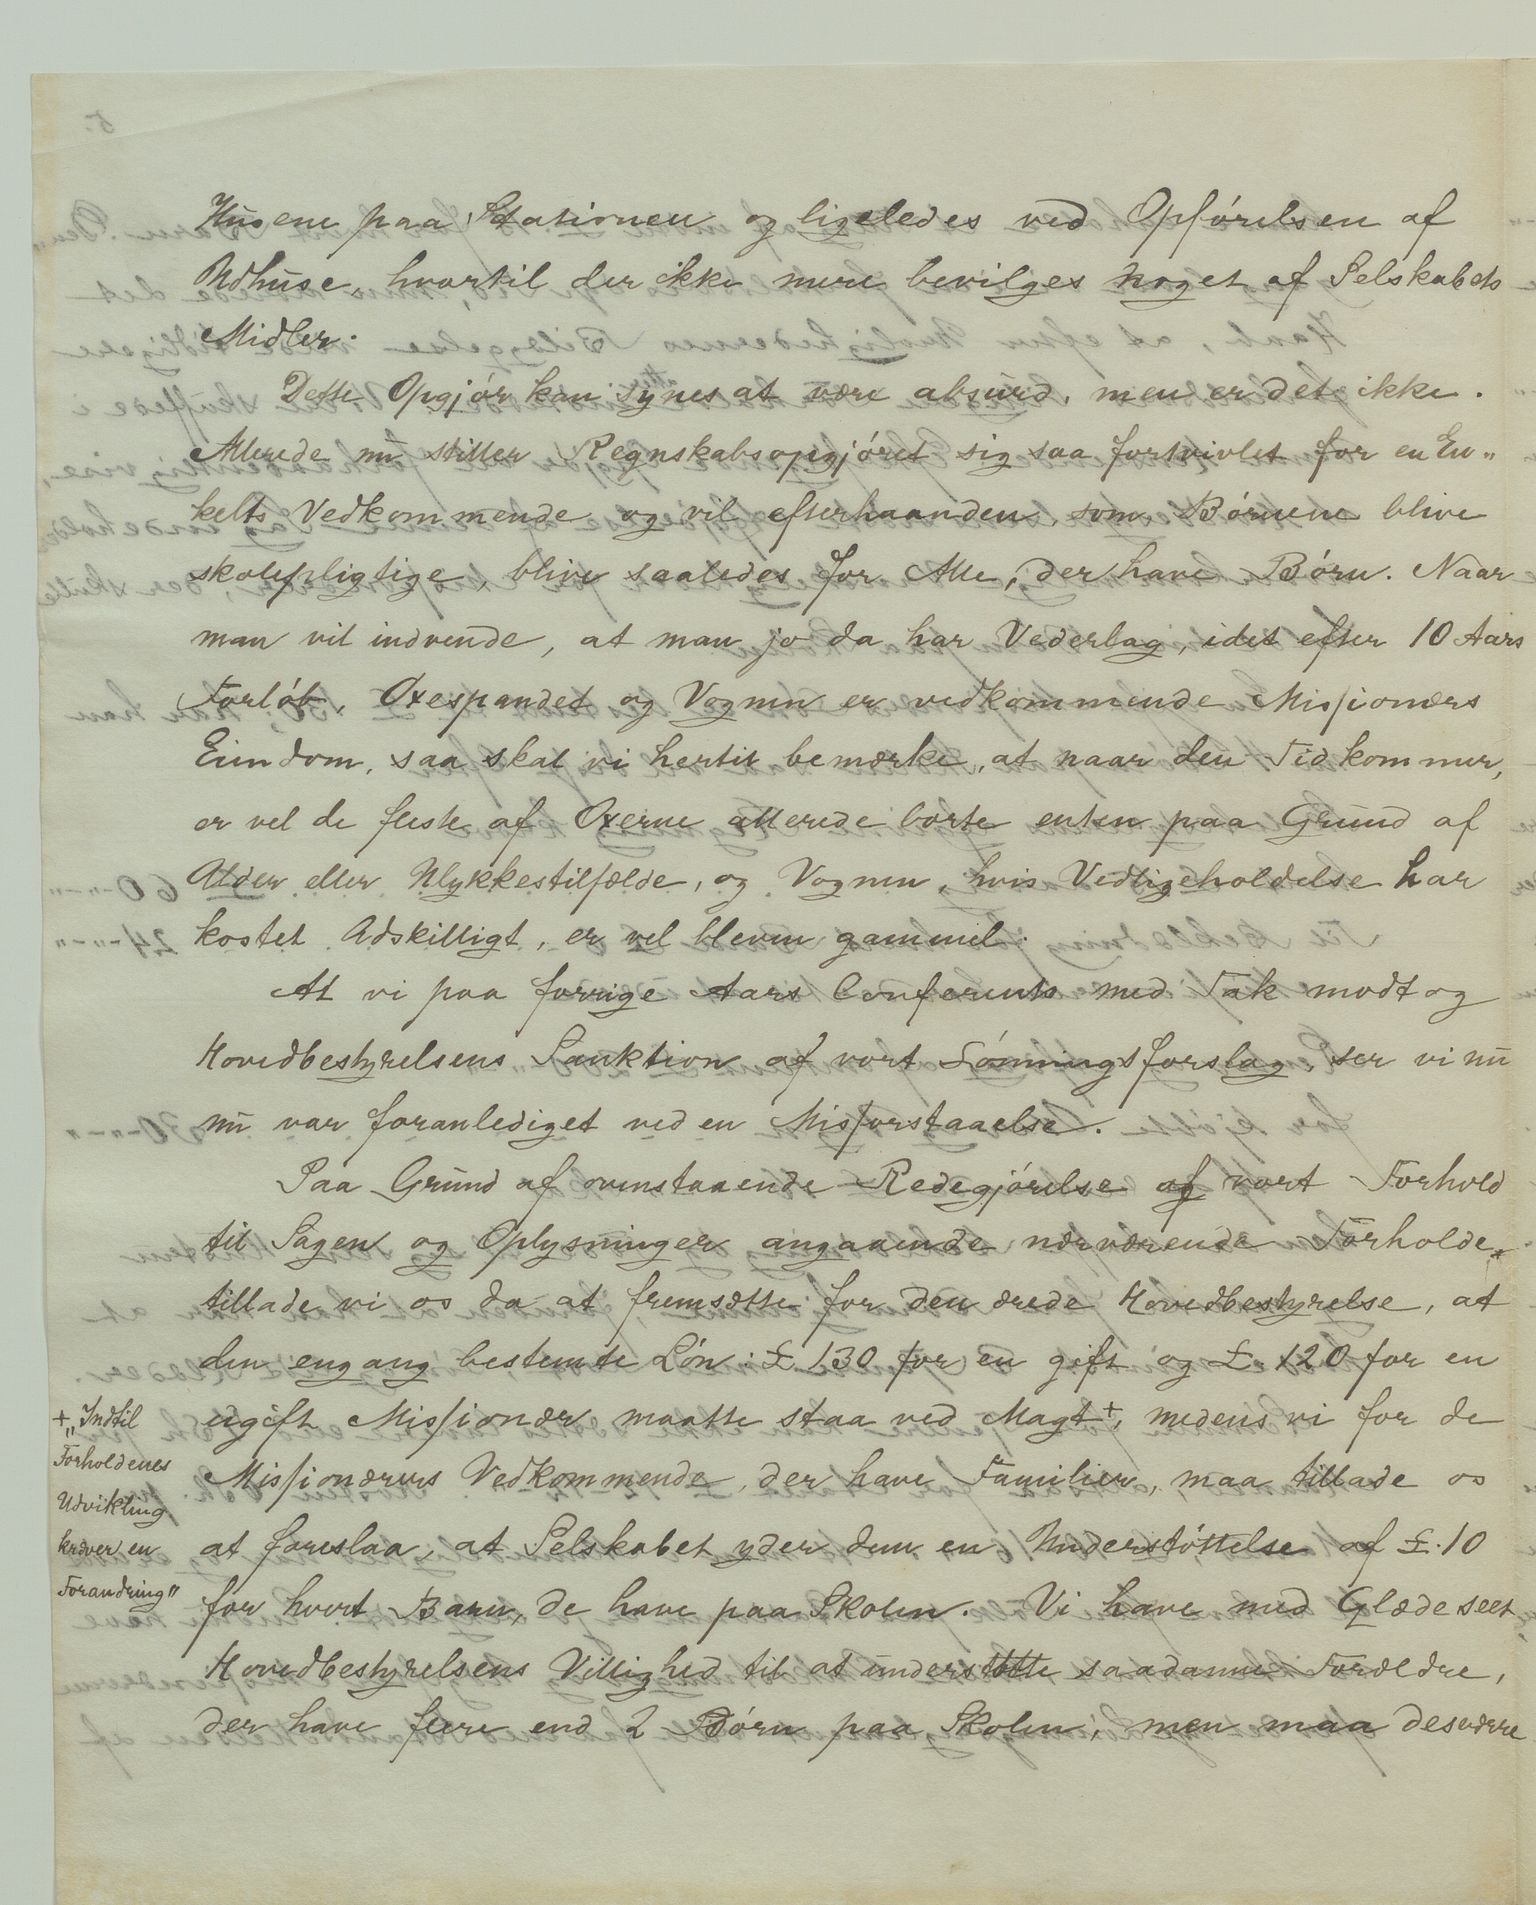 Husene paa Stationen og ligeledes ved Opförelsen af
Udhuse, hvortil der ikke mere bevilges noget af Selskabets
Midler.
Dette Opgjör kan synes at være absurd, men er det ikke.
Allerede nu stiller Regnskabsopgjöret sig saa fortvivlet for en En„
kelts Vedkommende og vil efterhaanden, som Börnene blive
skolepligtige, blive saaledes for Alle, der have Börn. Naar
man vil indvende, at man jo da har Vederlag, idet efter 10 Aars
Forlöb, Oxespandet og Vognen er vedkommende Missionærs
Eiendom, saa skal vi hertil bemærke, at naar den Tid kommer,
er vel de fleste af Oxerne allerede borte enten paa Grund af
Alder eller Ulykkestilfælde, og Vognen, hvis Vedligeholdelse har
kostet Adskilligt, er vel bleven gammel.
At vi paa forrige Aars Conferents med Tak modtog
Hovedbestyrelsens Sanktion af vort Lönningsforslag, ser vi nu
nu var foranlediget ved en Misforstaaelse.
Paa Grund af ovenstaaende Redegjörelse af vort Forhold
til Sagen og Oplysninger angaaende nærværende Forholde,
tillade vi os da at fremsætte for den ærede Hovedbestyrelse, at
den engang bestemte Lön: £ 130 for en gift og £ 120 for en
ugift Missionær maatte staa ved Magt+, medens vi for de
Missionærers Vedkommende, der have Familier, maa tillade os
at foreslaa, at Selskabet yder dem en Understöttelse af £.10
for hvert Barn, de have paa Skolen. Vi have med Glæde seet
Hovedbestyrelsens Villighed til at understötte saadanne Forældre,
der have flere end 2 Börn paa Skolen; men maa desværre
+ „Indtil
Forholdenes
Udvikling
kræver en
Forandring"